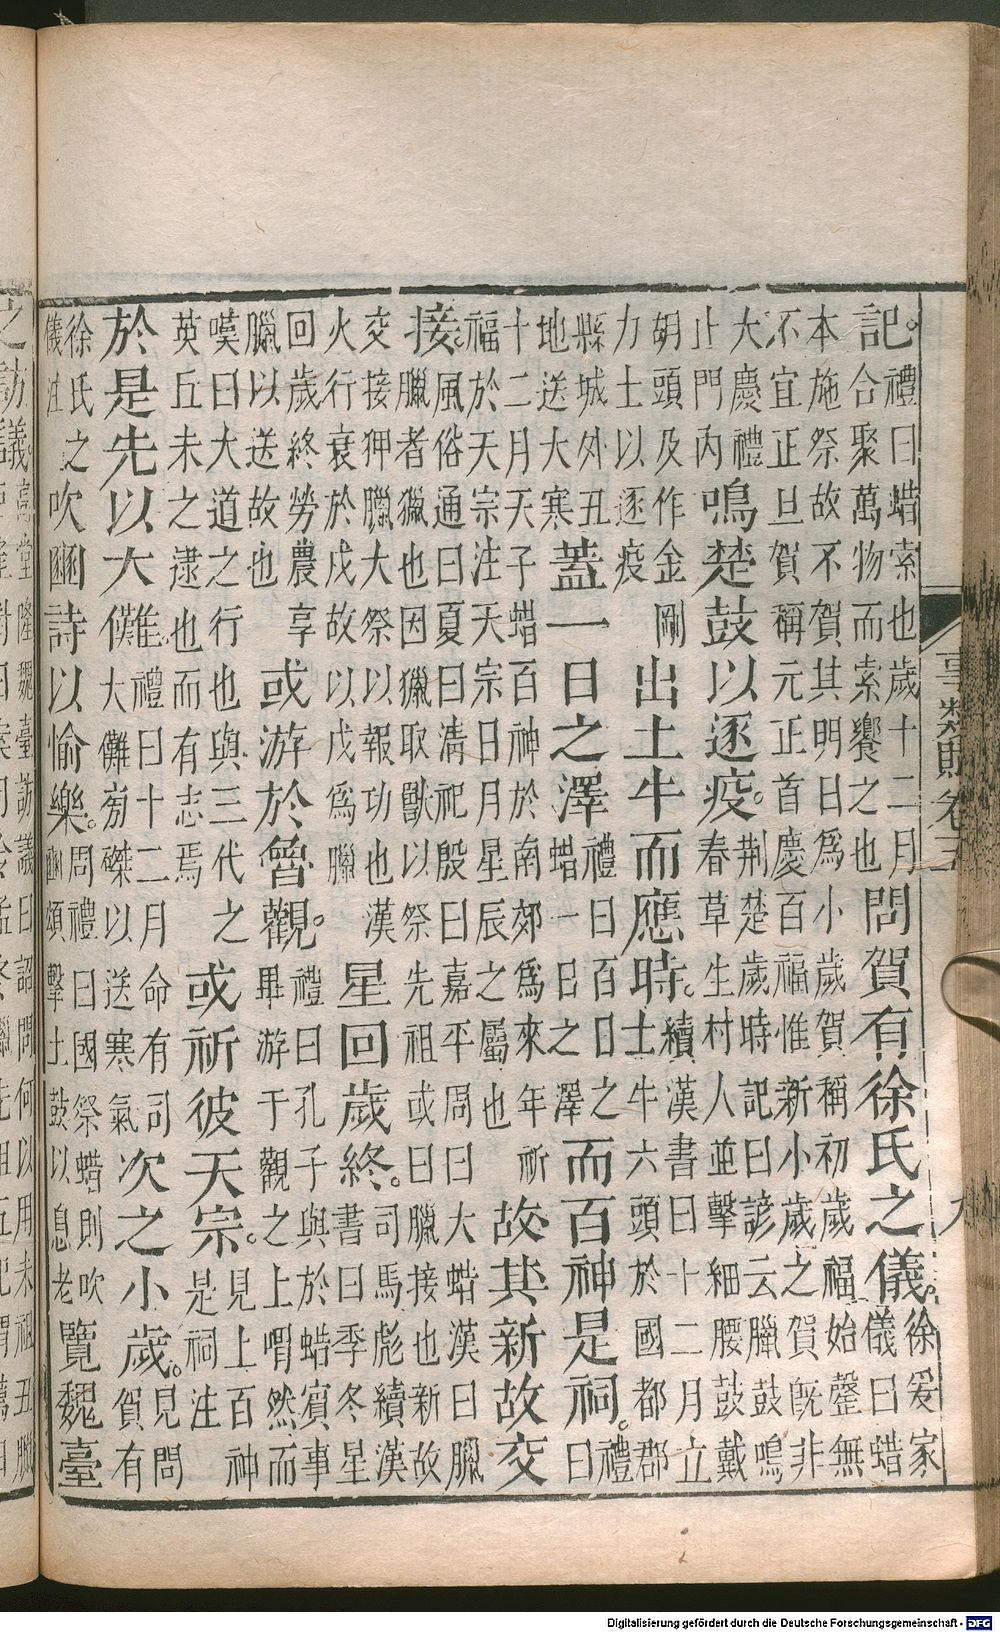 事類賦卷三
九
記。禮曰蜡索也歲十二月
合聚萬物而索饗之也
問賀有徐氏之儀。徐爰家
儀曰蜡
本施祭故不賀其明日為小歲賀稱初歲福始罄無
不宜正旦賀稱元正首慶百福惟新小歲之賀旣非
大慶禮
止門內
鳴楚鼓以逐疫。荆楚歲時記曰諺云臘鼓鳴
春草生村人並擊細腰鼓戴
胡頭及作金剛
力士以逐疫
出土牛而應時。續漢書曰十二月立
土牛六頭於國都郡
縣城外丑
地送大寒
蓋一日之澤禮曰百日之
蜡一日之澤
而百神是祠。禮
曰
十二月天子蜡百神於南郊為來年祈
福於天宗注天宗日月星辰之屬也
故其新故交
接。風俗通曰夏曰清祀殷曰嘉平周曰大蜡漢曰臘
臘者獵也因獵取獸以祭先祖或曰臘接也新故
交接狎臘大祭以報功也漢
火行衰於戌故以戌為臘
星回歲終。司馬彪續漢
書曰季冬星
回歲終勞農享
臘以送故也
或游於魯觀。禮曰孔子與於蜡賓事
畢游于觀之上喟然而
嘆曰大道之行也與三代之
英丘未之逮也而有志焉
或祈彼天宗。見上百神
是祠注
於是先以大儺。禮曰十二月命有司
大儺旁磔以送寒氣
次之小歲。見問
賀有
徐氏之
儀注
吹豳詩以愉樂。周禮曰國祭蜡則吹
豳頌擊土鼓以息老
覽魏臺
之訪議。高堂隆魏臺訪議曰詔問何以用未祖丑臘
Digitalisierung gefördert durch die Deutsche Forschungsgemeinschaft - DFG